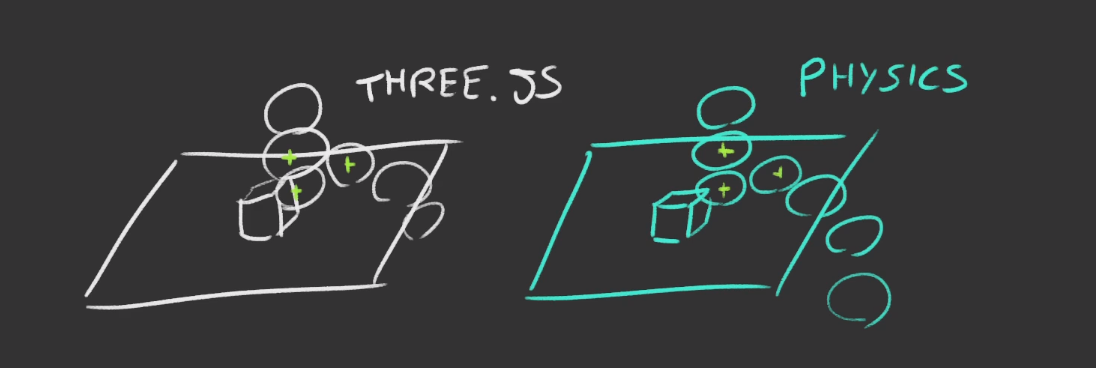 THREE.JS
PHYSICS